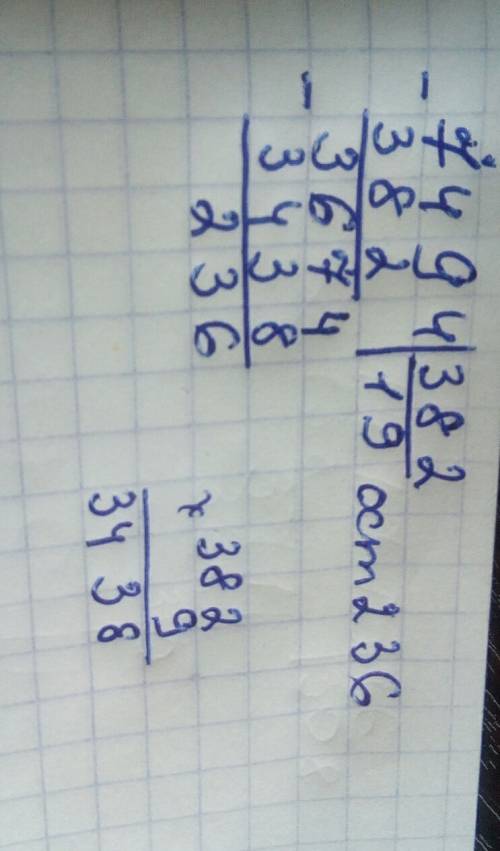 - 7494 | 382
382 | 19 ост 236
- 3674
3438
236
× 382
9
3438